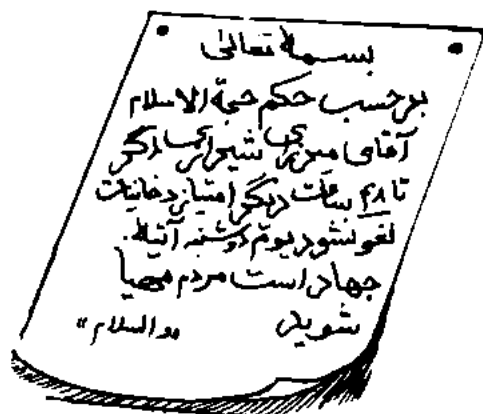 بسمه تعالی
برحسب حکم حجة الاسلام
آقای میرزای شیرازی اگر
تا ۴۸ ساعت دیگر امتیاز دخانیات
لغو نشود یوم دوشنبه آتیه.
جهاد است مردم مهیا
شوید
«والسلام»